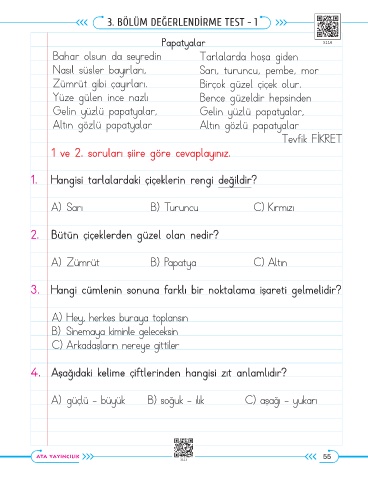 3. BÖLÜM DEĞERLENDİRME TEST - 1
Papatyalar
Bahar olsun da seyredin
Nasıl süsler bayırları,
Zümrüt gibi çayırları.
Yüze gülen ince nazlı
Gelin yüzlü papatyalar,
Altın gözlü papatyalar
Tarlalarda hoşa giden
Sarı, turuncu, pembe, mor
Birçok güzel çiçek olur.
Bence güzeldir hepsinden
Gelin yüzlü papatyalar,
Altın gözlü papatyalar
Tevfik FİKRET
1 ve 2. soruları şiire göre cevaplayınız.
1. Hangisi tarlalardaki çiçeklerin rengi değildir?
A) Sarı B) Turuncu C) Kırmızı
2. Bütün çiçeklerden güzel olan nedir?
A) Zümrüt B) Papatya C) Altın
3. Hangi cümlenin sonuna farklı bir noktalama işareti gelmelidir?
A) Hey, herkes buraya toplansın
B) Sinemaya kiminle geleceksin
C) Arkadaşların nereye gittiler
4. Aşağıdaki kelime çiftlerinden hangisi zıt anlamlıdır?
A) güçlü - büyük B) soğuk - ılık C) aşağı - yukarı
ATA YAYINCILIK
55